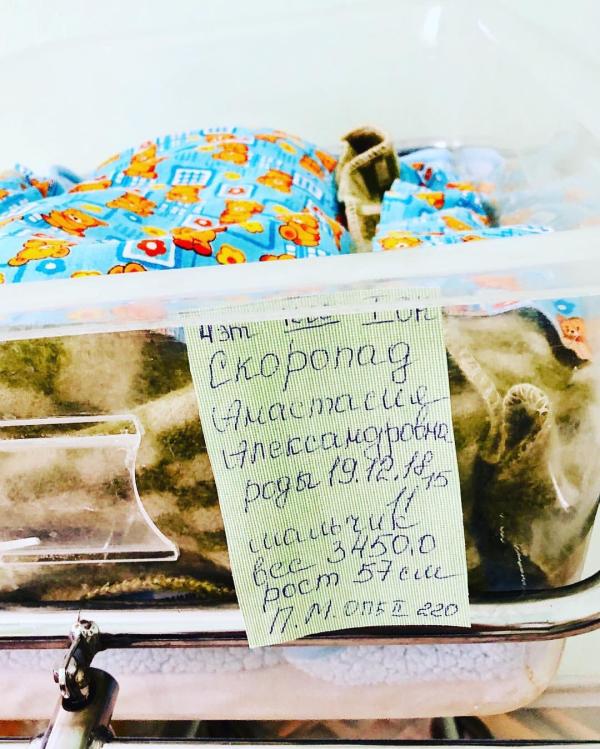 4эт
Скоропад
Анастасия
Александровна
роды 19.12.18
11 15
мальчик
вес 3450,0
рост 57 см
П.М. ОПБ II 220